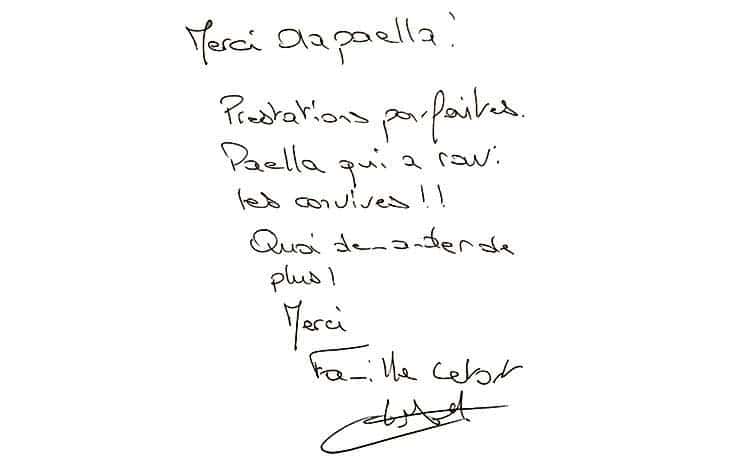 Merci Olapaella!
Prestations parfaites.
Paella qui a ravi
les convives!!
Quoi demander de
plus!
Merci
Famille